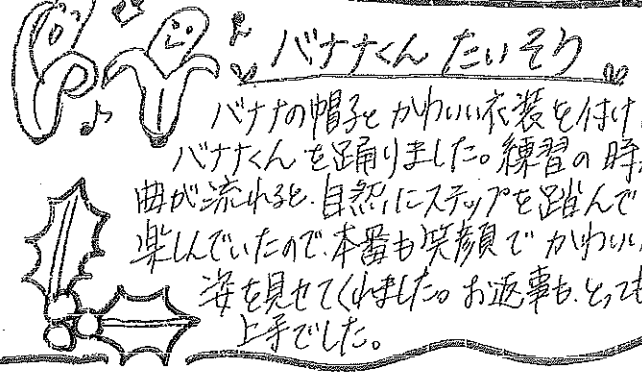 バナナくん たいそう
バナナの帽子とかわいい衣装を付け
バナナくんを踊りました。練習の時
曲が流れると、自然にステップを踏んで
楽しんでいたので、本番も笑顔でかわいい
姿を見せてくれました。お返事も、とっても
上手でした。